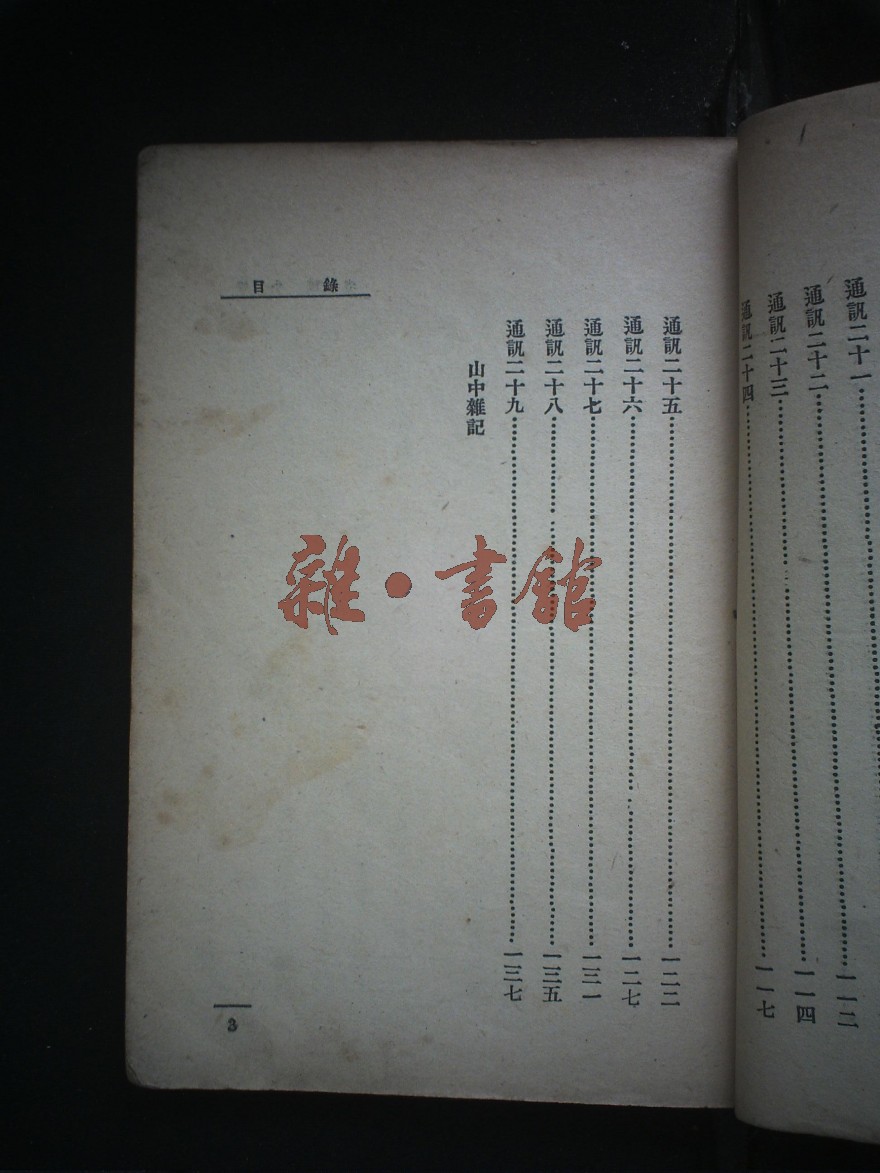 通訊二十一
通訊二十二……一一二
通訊二十三……一一四
通訊二十四……一一七
目錄
通訊二十五……一二二
通訊二十六……一二七
通訊二十七……一三一
通訊二十八……一三五
通訊二十九……一三七
山中雜記
3
雜·書館